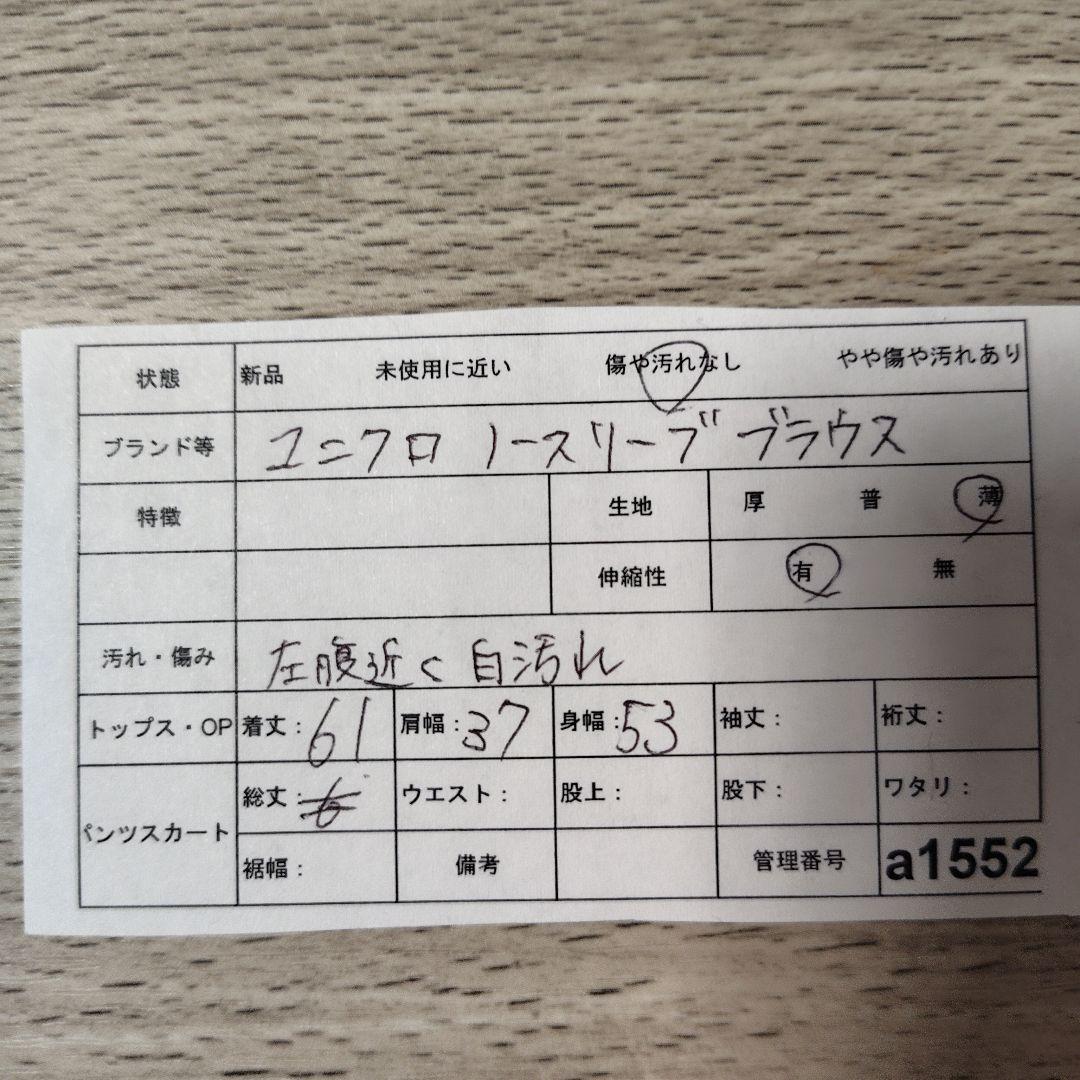 状態 新品 未使用に近い 傷や汚れなし やや傷や汚れあり
ブランド等 ユニクロ ノースリーブ ブラウス
特徴 生地 厚 普 薄
伸縮性 有 無
汚れ・傷み 左腹近く白汚れ
トップス・OP 着丈：61 肩幅：37 身幅：53 袖丈： 裄丈：
パンツスカート 総丈： ウエスト： 股上： 股下： ワタリ：
裾幅： 備考 管理番号 a1552